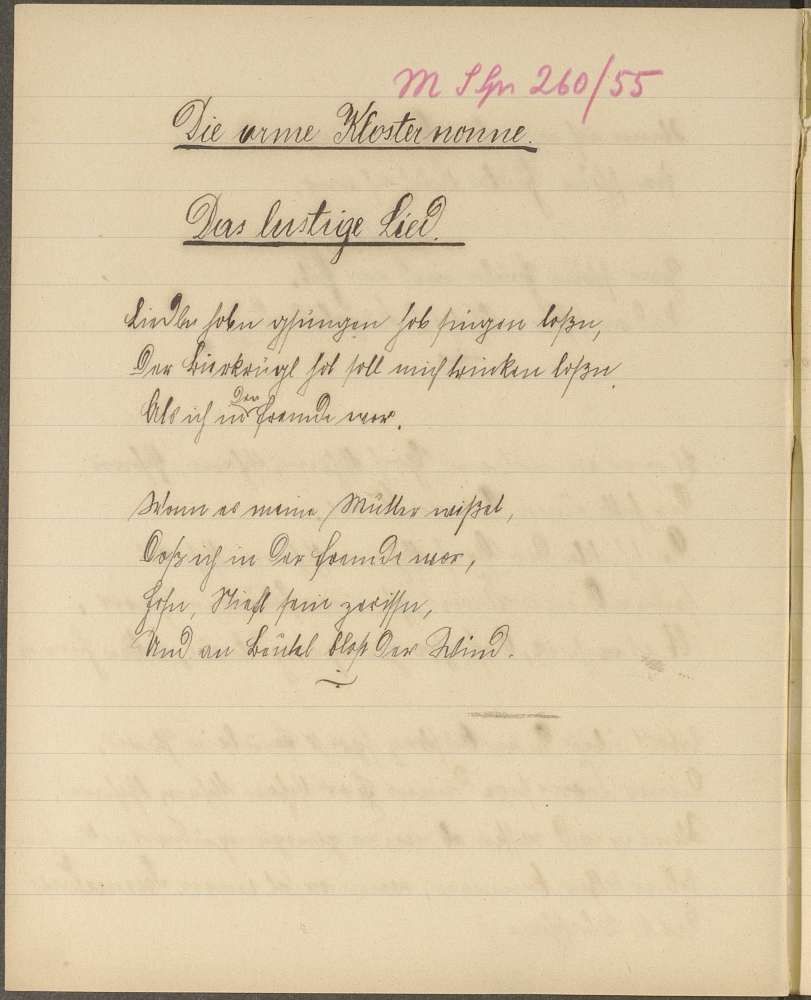 M Spr 260/55
Die arme Klosternonne.
Das lustige Lied.
Liedln hobn gsungen hob singen loßn,
Der Bierkrügl hot soll mich trinken loßn.
Als ich in der fremde wor.
Wenn es meine Mutter wißet,
Doß ich in der fremde wor,
Hosn, Stiefl sein zerissn,
Und an Beutel bloßt der Wind.